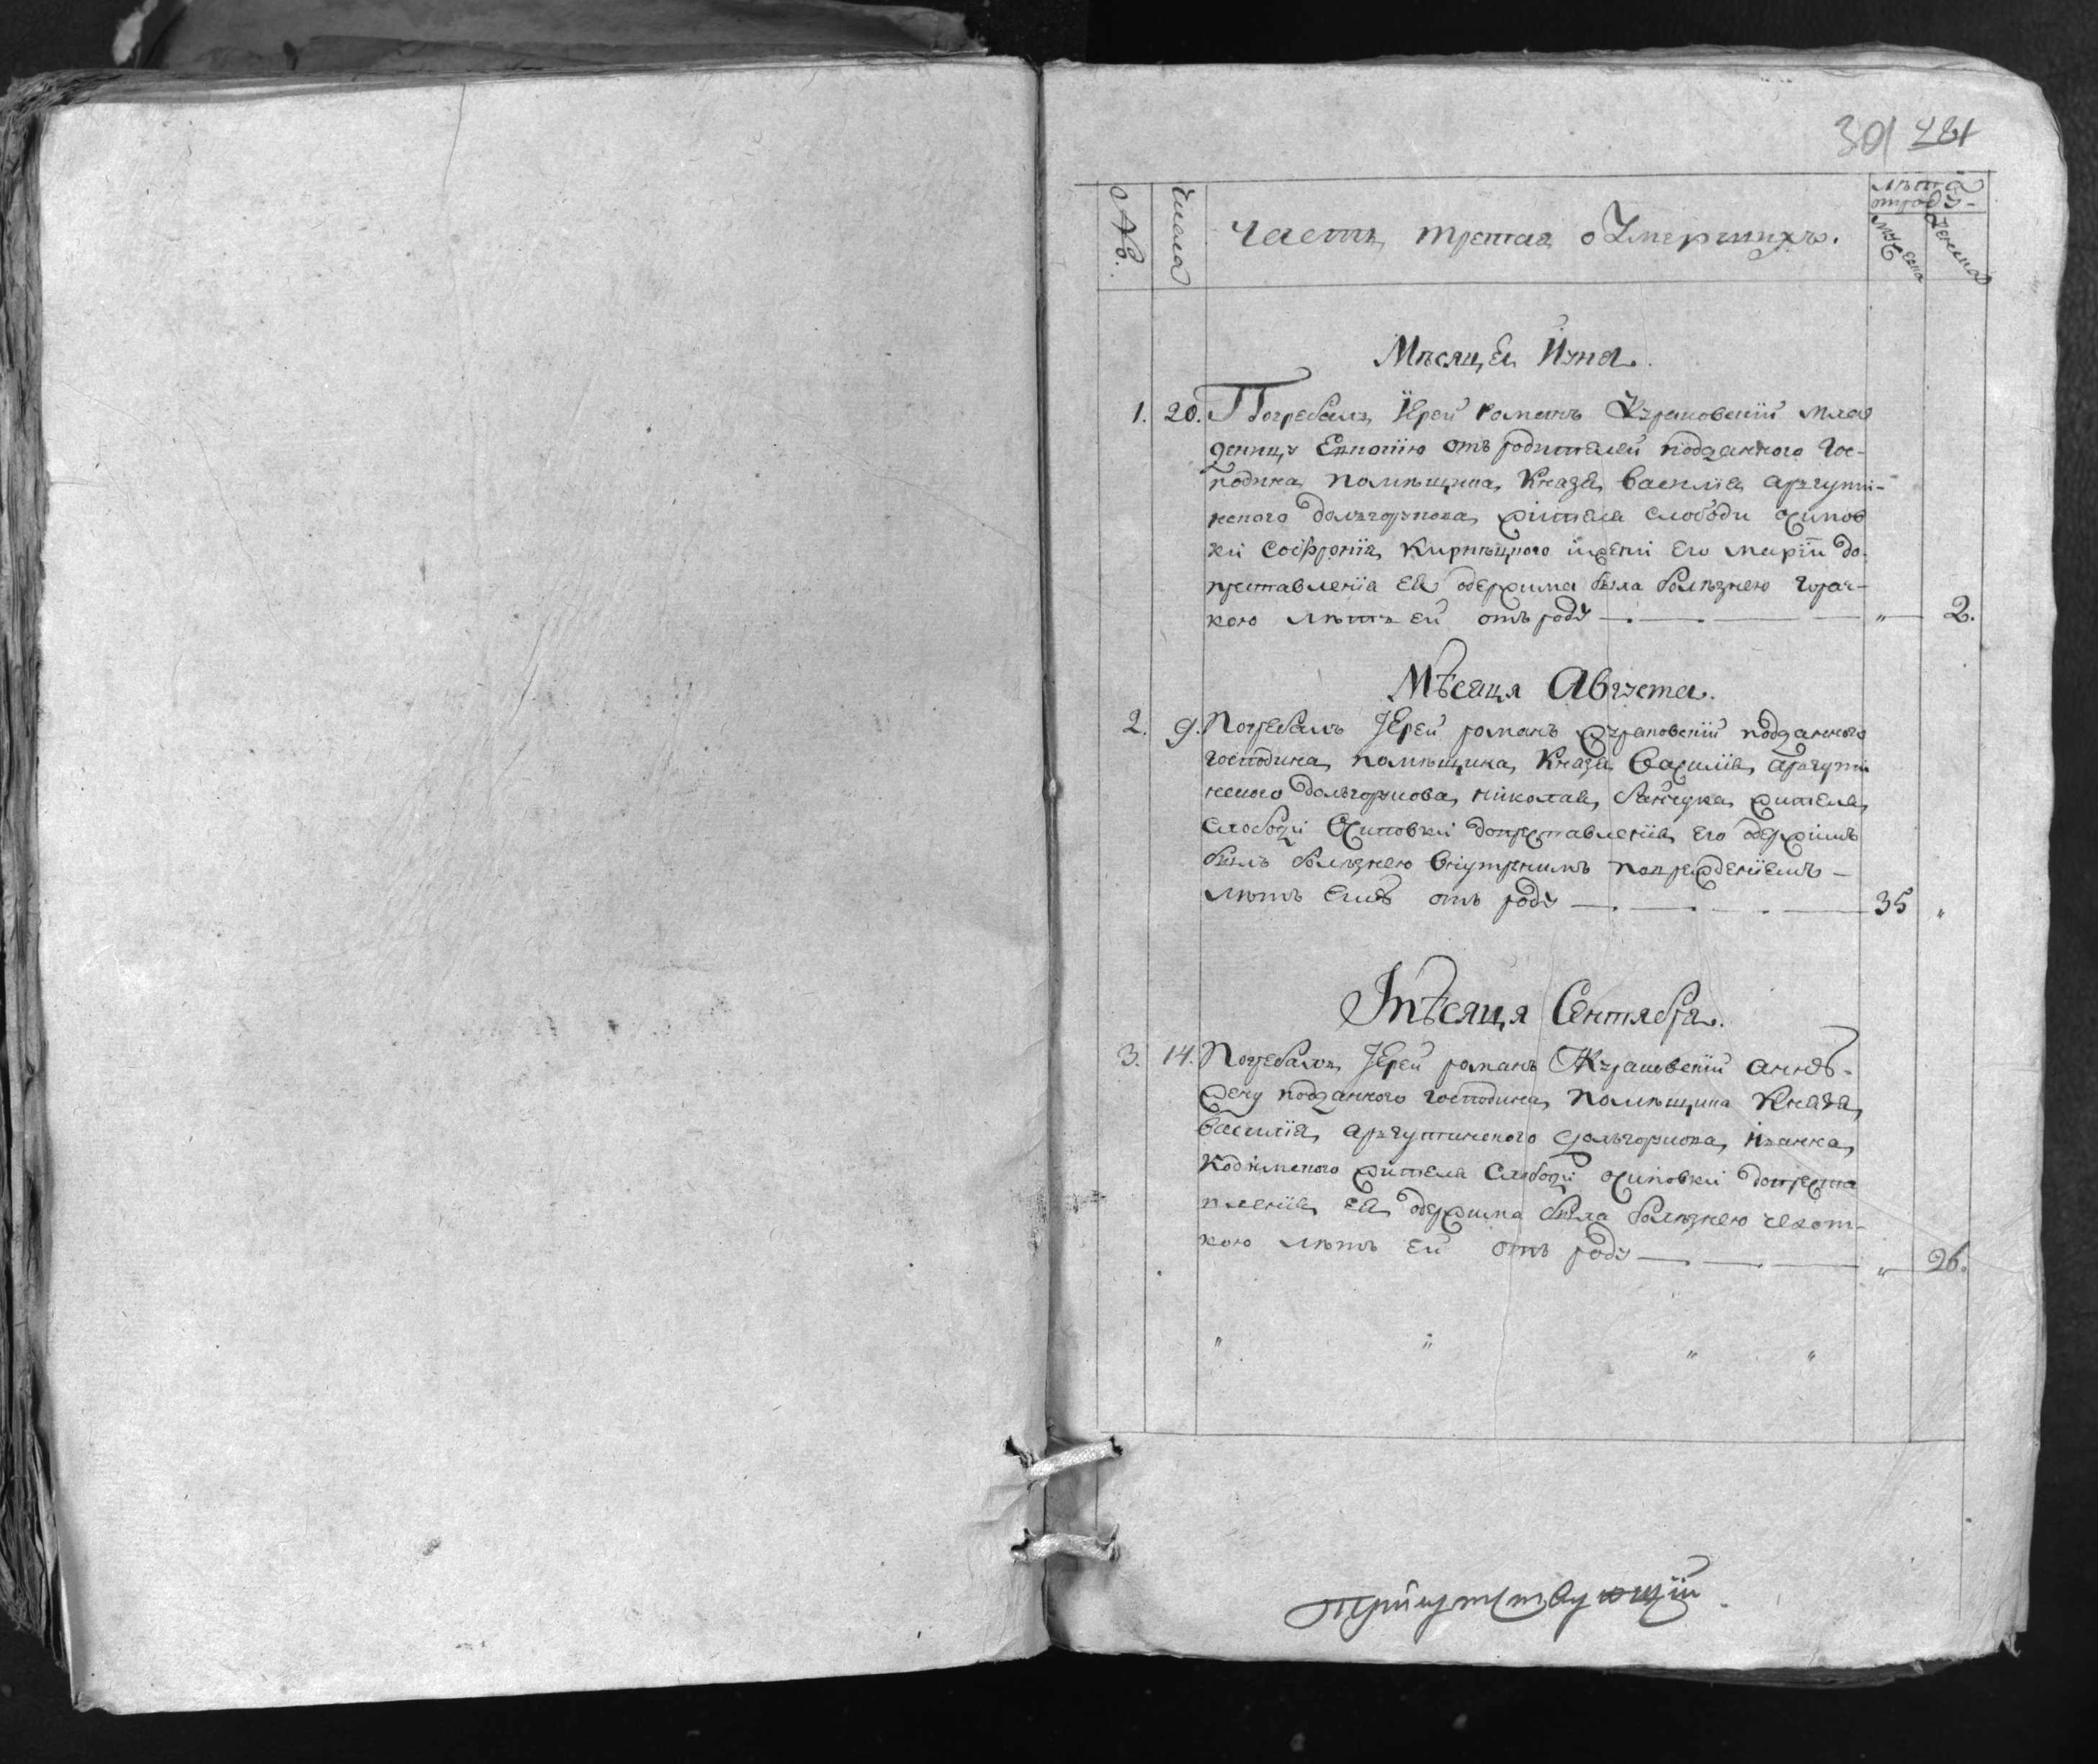 301 281
№.
Числа
Часть третая о Умершихъ.
лѣта
отроду-
мужеска
женска
Мѣсяца Июня.
1. 20. Погребалъ Иерей романъ Журановскій мла
деницу Евпопію отъ родителей подданного Гос-
подина помѣщика, Князя Василіа аргути-
нского долъгорукова жителя слободи Осипов
ки Софронія Кирпѣчного ижени Его маріи до
преставленія Ея одержима была болѣзнею Горяч-
кою лѣтъ ей отъ роду — „ 2.
Мѣсяця Августа.
2. 9. Погребалъ Іерей романъ Журановскій подданного
господина, помѣщика, Князя Василія, аргути
нского долъгорукова, николая, жителя,
слободи Осиповки допреставленія, его одержимъ
былъ болѣзнею внутренимъ повреждениемъ —
лѣтъ Ему отъ роду — 35 „
Мѣсяця Сентября.
3. 14. Погребалъ, Іерей романъ Журановскій анну-
жену подданного господина, помѣщика Князя,
Василія, аргутинского долъгорукова, Ивана,
жителя слободи осиповки допреста
вленія, ея, одержима была болѣзнею чехот-
кою лѣтъ ей отъ роду — „ 26.
„ „ „ „